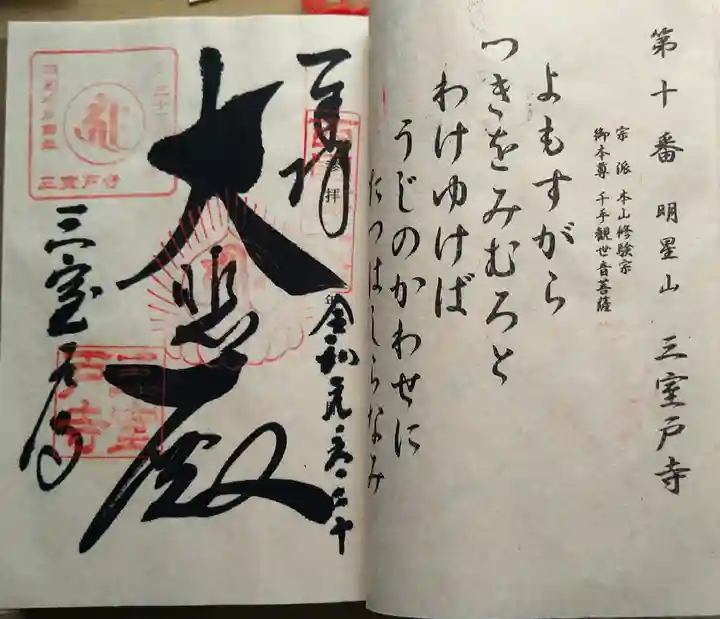 第十番 明星山 三室戸寺
宗派 本山修験宗
御本尊 千手観世音菩薩
よもすがら
つきをみむろと
わけゆけば
うじのかわせに
たつはしらなみ
奉拝
参拝
令和元・六・二十
大悲殿
三室戸寺
三室戸寺
三室戸寺